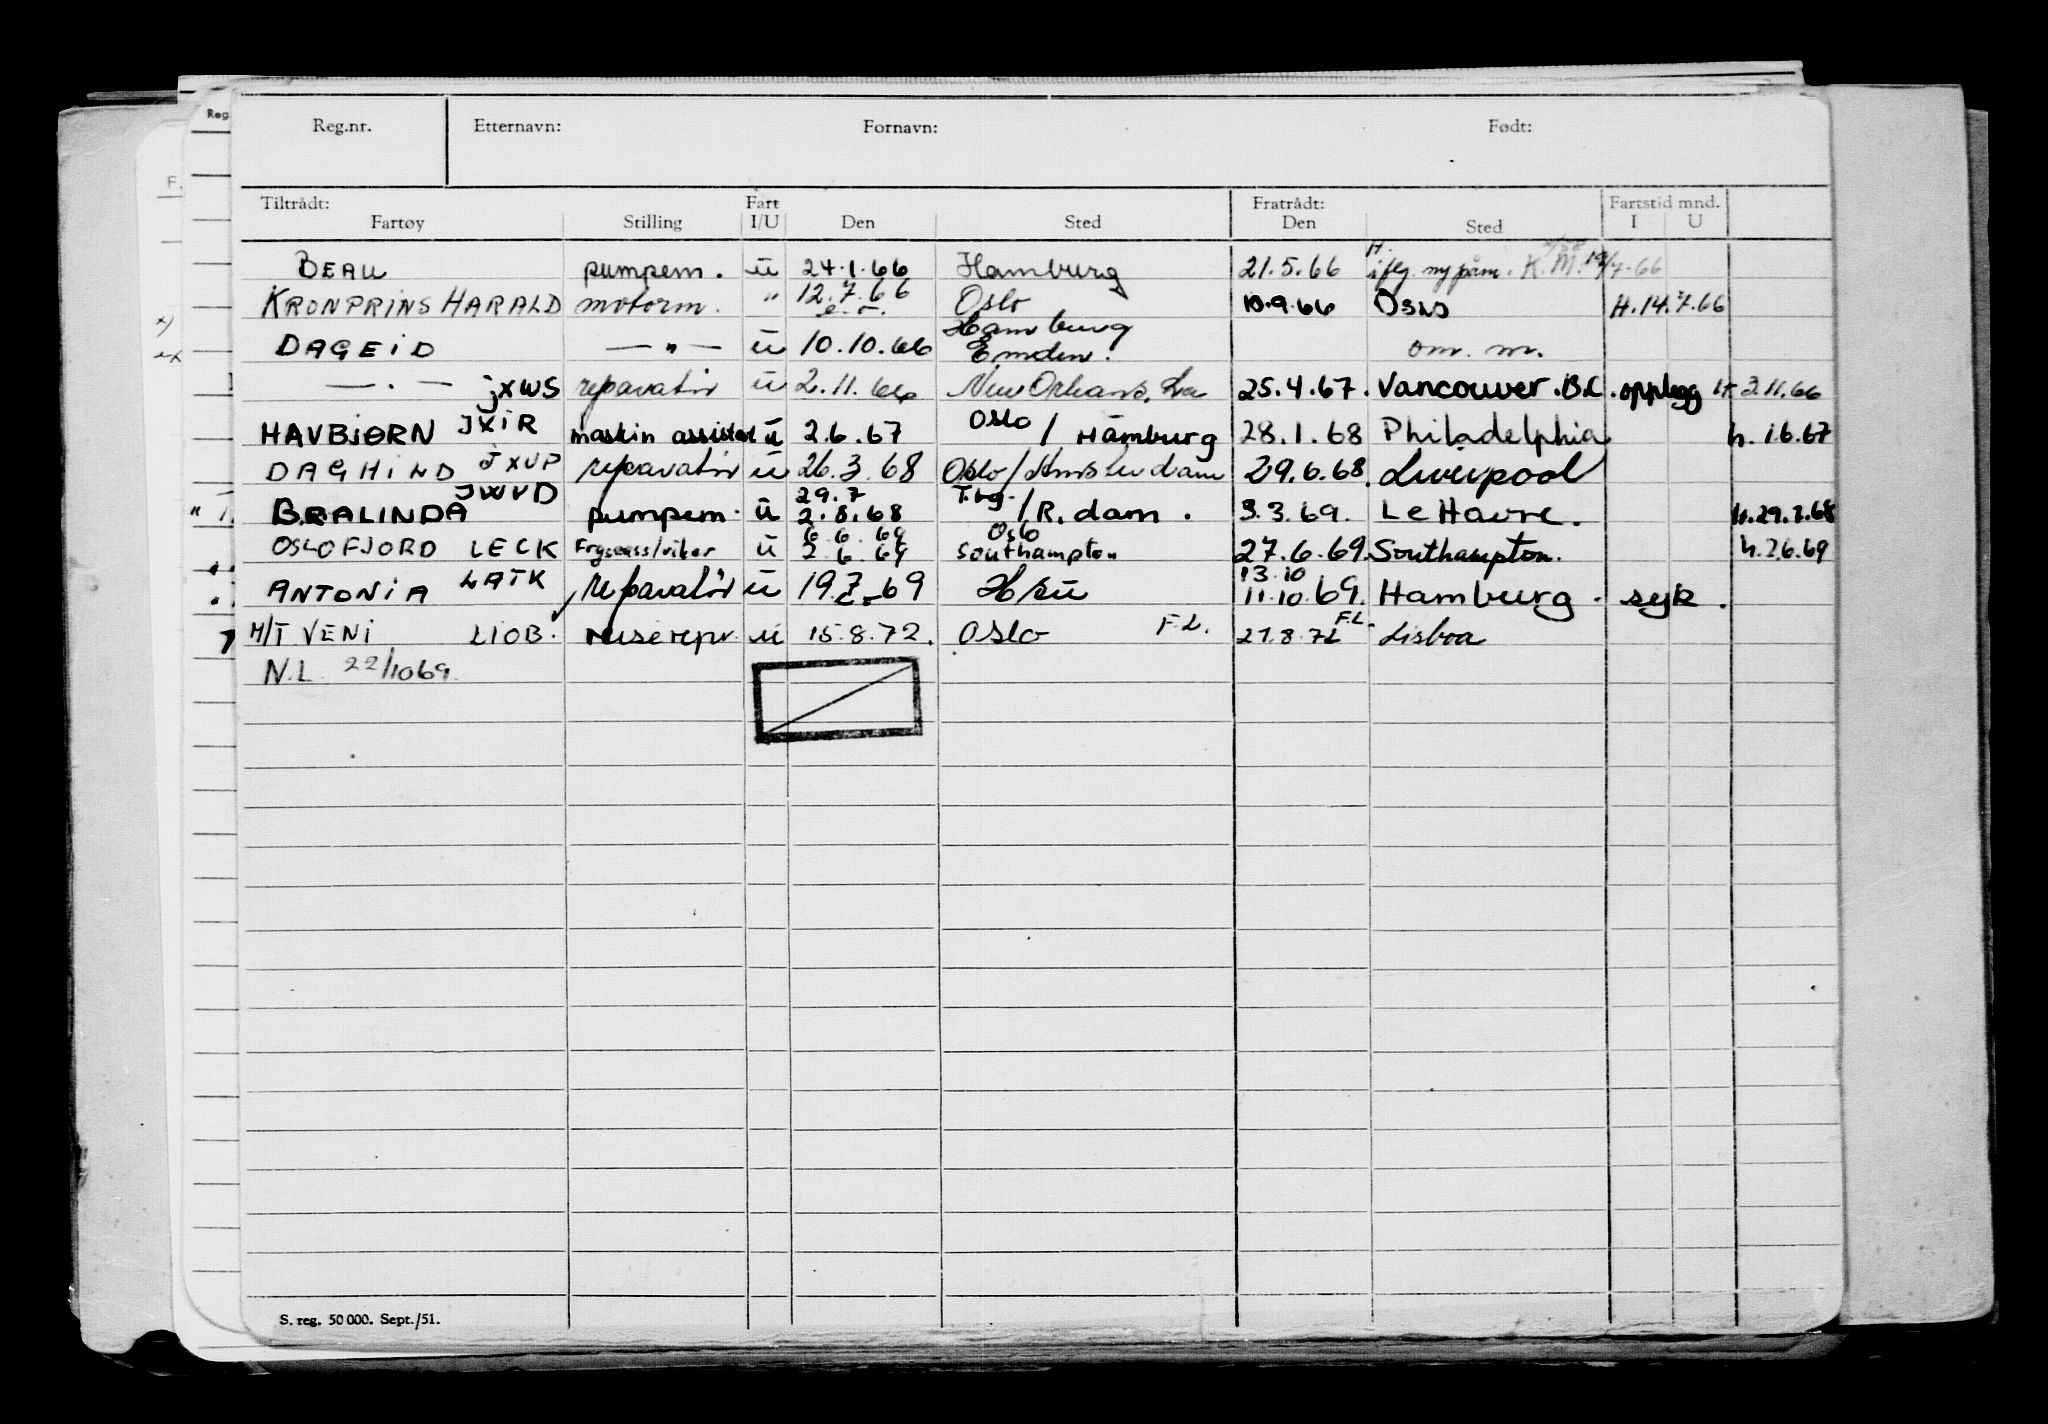 Reg.nr. Etternavn: Fornavn: Født:
Tiltrådt: Fart Fratrådt: Fartstid mnd.
Fartøy Stilling I/U Den Sted Den Sted I U
BEAU pumpem. ū 24.1.66 Hamburg 21.5.66 K.M.
KRONPRINS HARALD motorm. " 12.7.66 Oslo 10.9.66 Oslo H.14.7.66
e.o. Hamburg
DAGEID — " — ū 10.10.66 Emden. om. m.
— . — JXWS reparatør ū 2.11.66 New Orleans, La 25.4.67. Vancouver.B.C. opplegg H 3.11.66
HAVBJØRN JXIR maskin assistent ū 2.6.67 Oslo / Hamburg 28.1.68 Philadelphia h. 1.6.67
DAGHILD JXUP reparatør ū 26.3.68 Oslo/Amsterdam 29.6.68. Liverpool
29.7 Tbg.
BRALINDA JWVD pumpem. ū 2.8.68 /R.dam. 3.3.69. Le Havre. h.29.7.68
6.6.69 Oslo
OSLOFJORD LECK ū 2.6.69 Southampton 27.6.69. Southampton. h.2.6.69
13.10
ANTONIA LATK reparatør ū 19.7.69 11.10.69. Hamburg. syk.
M/T VENI LIOB. reiserepr. ū 15.8.72. Oslo F.L. 27.8.72 F.L. Lisboa
N.L. 22/1069.
S. reg. 50 000. Sept./51.